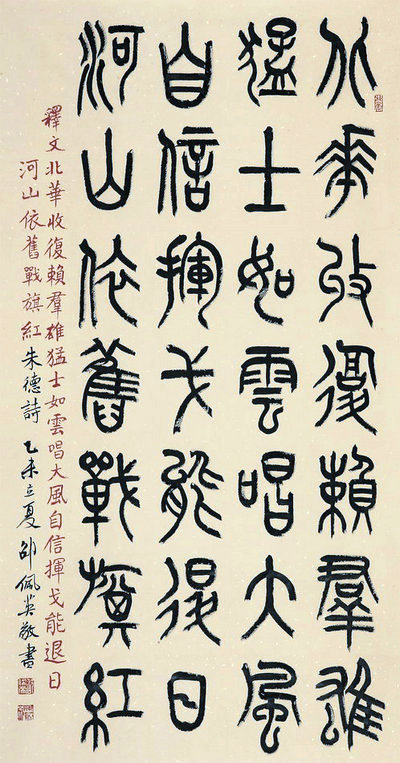 北華收復賴羣雄
猛士如雲唱大風
自信揮戈能退日
河山依舊戰旗紅
釋文北華收復賴羣雄猛士如雲唱大風自信揮戈能退日
河山依舊戰旗紅朱德詩乙未立夏邵佩英敬書